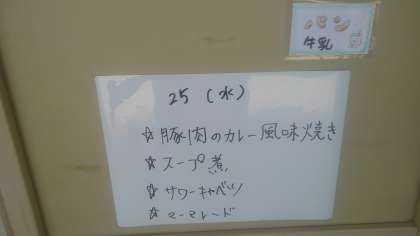 パン
牛乳
25 (水)
☆豚肉のカレー風味焼き
☆スープ煮
☆サワーキャベツ
☆マーマレード